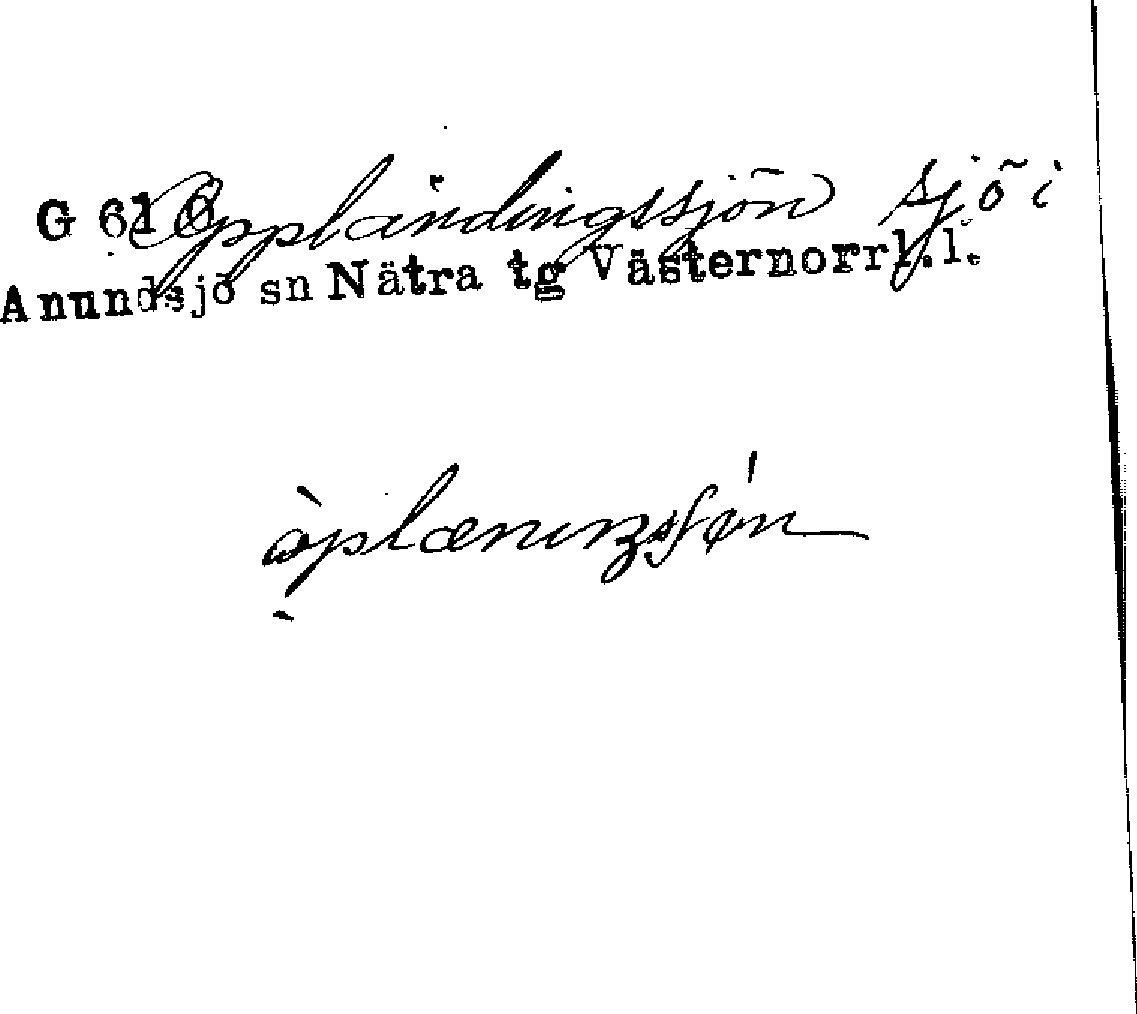 G 616 Oppländingssjön sjö i
Anundsjö sn Nätra tg Västernorrl. l.